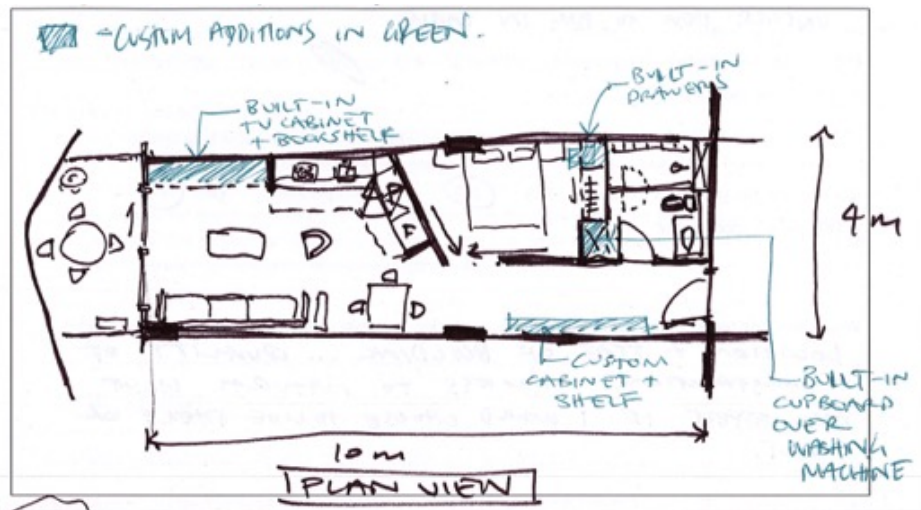 -CUSTOM ADDITIONS IN GREEN.
BUILT-IN
TV CABINET
+ BOOKSHELF
BUILT-IN
DRAWERS
4m
CUSTOM
CABINET +
SHELF
BUILT-IN
CUPBOARD
OVER
WASHING
MACHINE
10m
PLAN VIEW